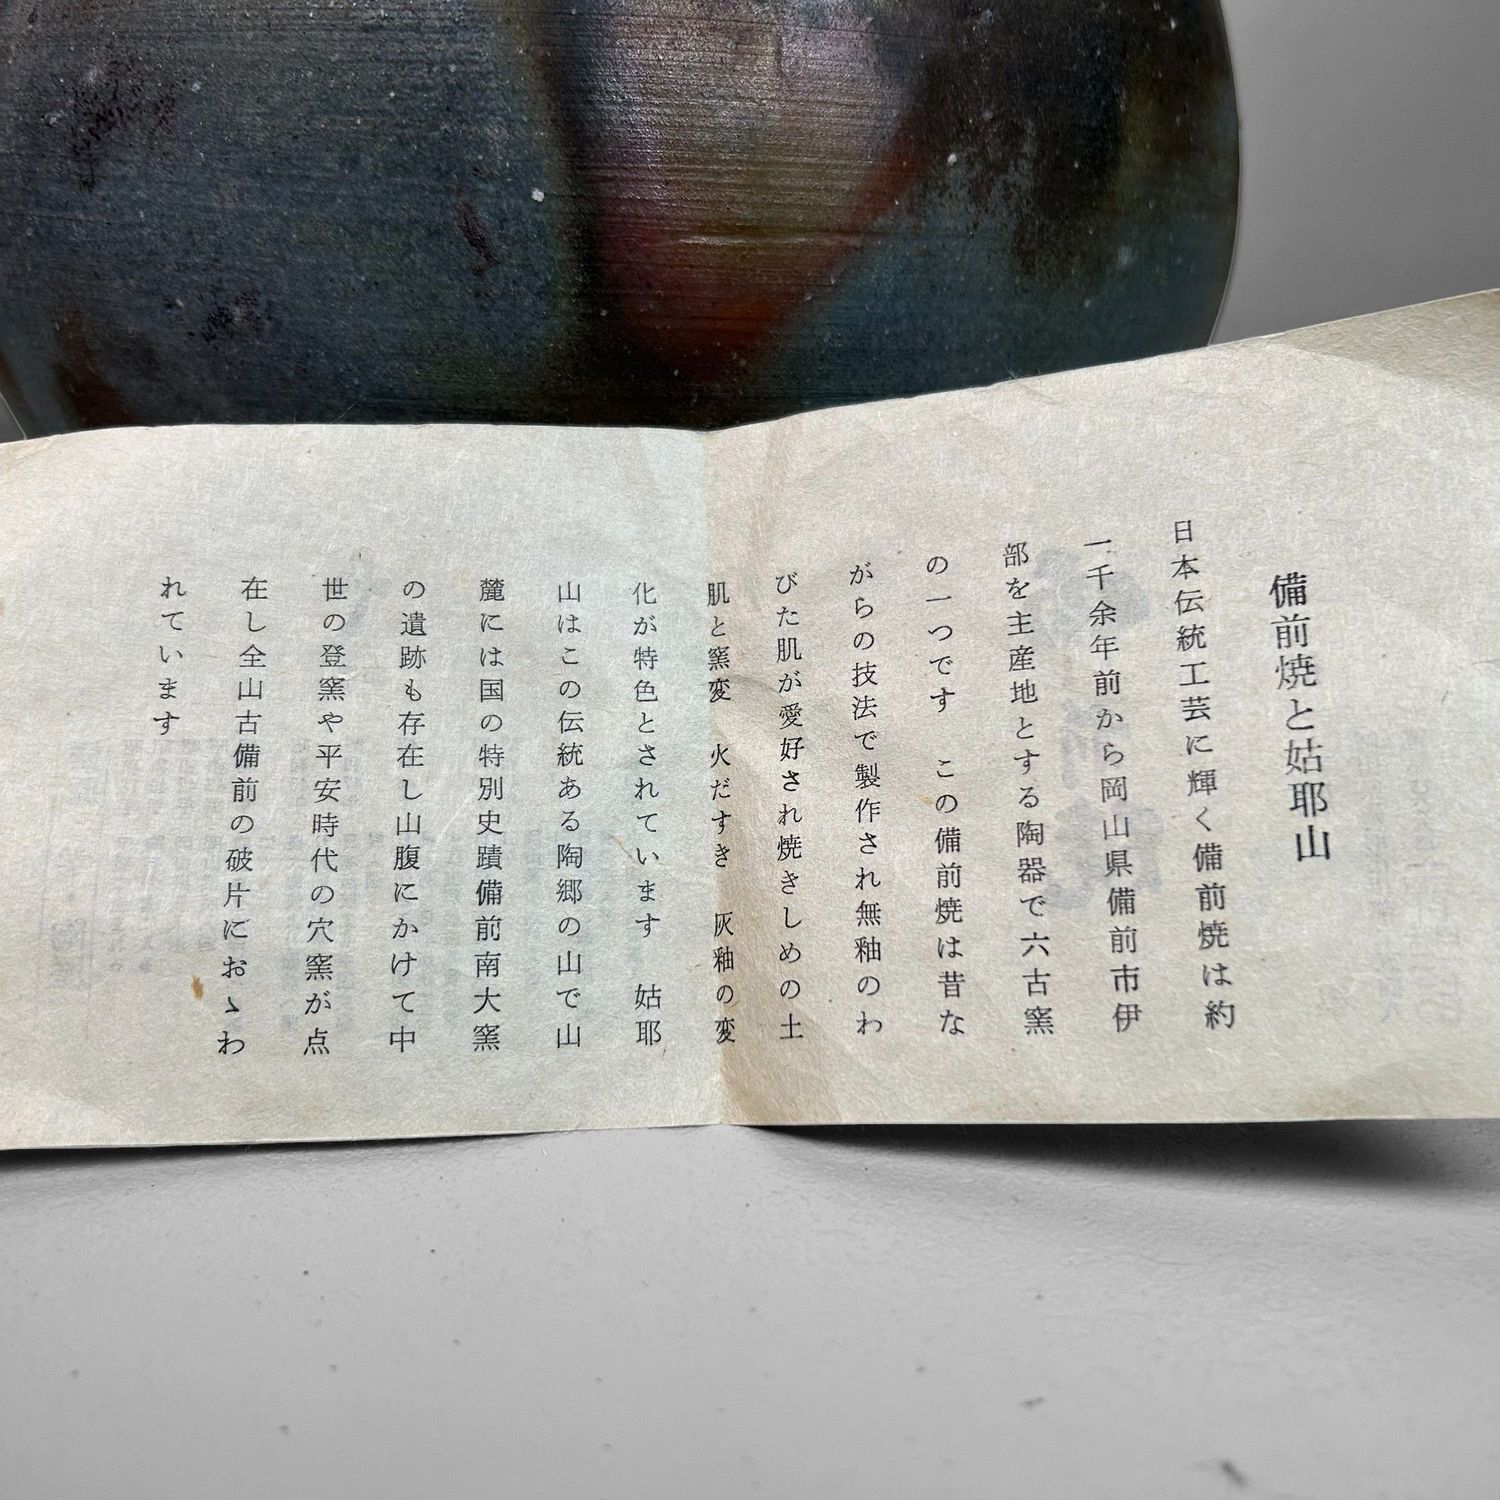 備前焼と姑耶山
日本伝統工芸に輝く備前焼は約
一千余年前から岡山県備前市伊
部を主産地とする陶器で六古窯
の一つです　この備前焼は昔な
がらの技法で製作され無釉のわ
びた肌が愛好され焼きしめの土
肌と窯変　火だすき　灰釉の変
化が特色とされています　姑耶
山はこの伝統ある陶郷の山で山
麓には国の特別史蹟備前南大窯
の遺跡も存在し山腹にかけて中
世の登窯や平安時代の穴窯が点
在し全山古備前の破片におゝわ
れています